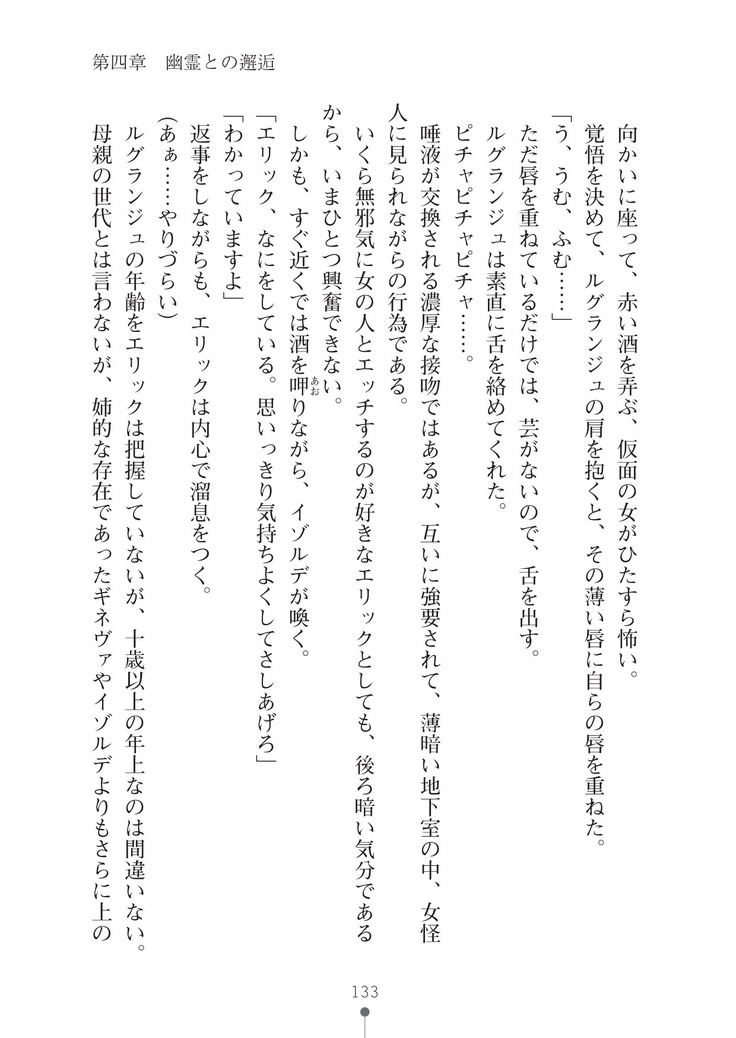 第四章　幽霊との邂逅
向かいに座って、赤い酒を弄ぶ、仮面の女がひたすら怖い。
覚悟を決めて、ルグランジュの肩を抱くと、その薄い唇に自らの唇を重ねた。
「う、うむ、ふむ……」
ただ唇を重ねているだけでは、芸がないので、舌を出す。
ルグランジュは素直に舌を絡めてくれた。
ピチャピチャピチャ……。
唾液が交換される濃厚な接吻ではあるが、互いに強要されて、薄暗い地下室の中、女怪
人に見られながらの行為である。
いくら無邪気に女の人とエッチするのが好きなエリックとしても、後ろ暗い気分である
から、いまひとつ興奮できない。
しかも、すぐ近くでは酒を呷りながら、イゾルデが喚く。
あお
「エリック、なにをしている。思いっきり気持ちよくしてさしあげろ」
「わかっていますよ」
返事をしながらも、エリックは内心で溜息をつく。
(あぁ……やりづらい)
ルグランジュの年齢をエリックは把握していないが、十歳以上の年上なのは間違いない。
母親の世代とは言わないが、姉的な存在であったギネヴァやイゾルデよりもさらに上の
133